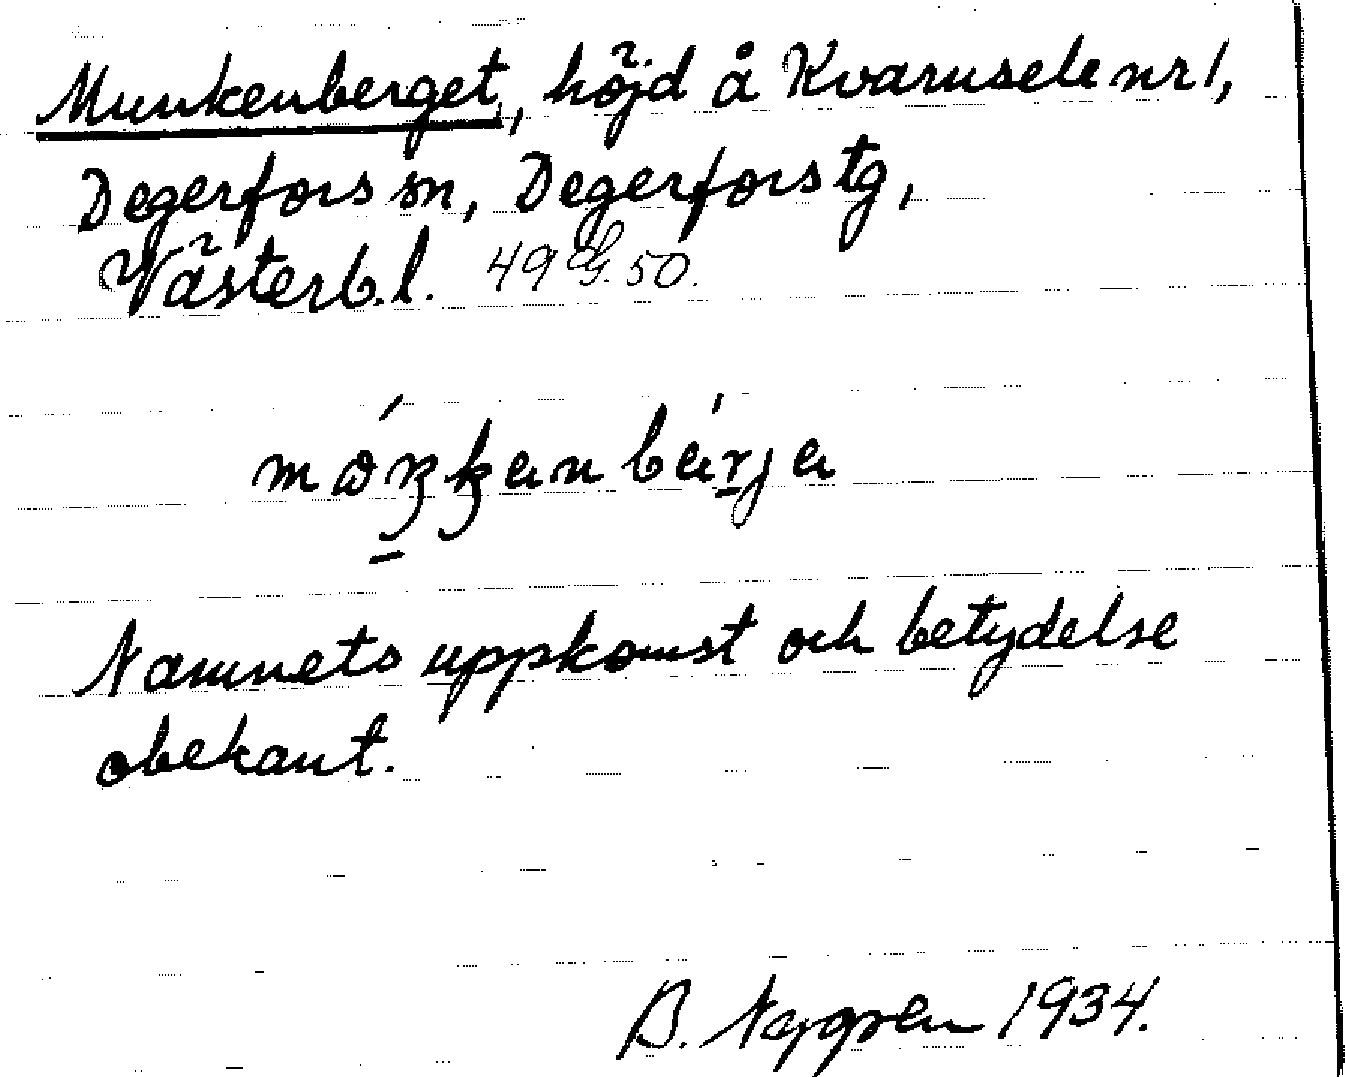 Munkenberget, höjd å Kvarnsele nr 1,
Degerfors sn, Degerfors tg,
Västerb. l. 49 G. 50.
Namnets uppkomst och betydelse
obekant.
B. Nygren 1934.